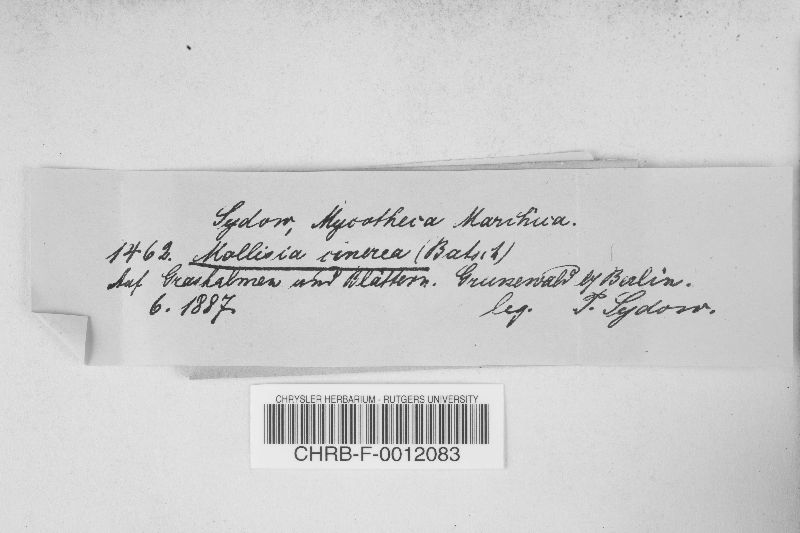 Sydow, Mycotheca Marchica.
1462. Mollisia cinerea (Batsch)
Auf Grashalmen und Blättern. Grunewald b/ Berlin.
6. 1887. leg. P. Sydow.
CHRYSLER HERBARIUM - RUTGERS UNIVERSITY
CHRB-F-0012083